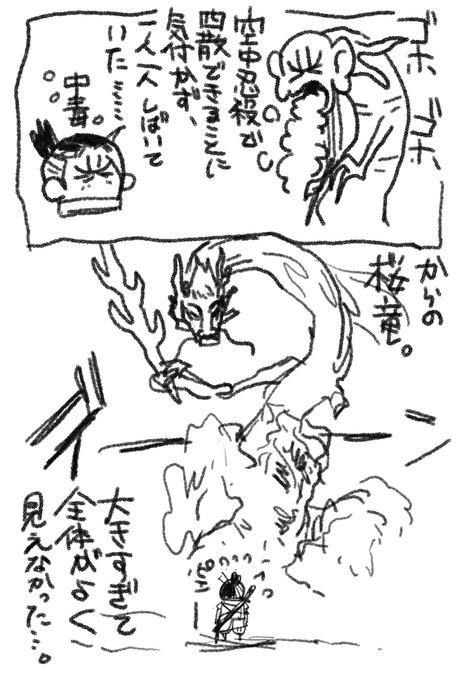 ゴホ
ゴホ
空中忍殺で
四散できることに
気付かず、
一人一人しばいて
いた……
中毒。
からの
桜竜。
大きすぎて
全体がよく
見えなかった…。